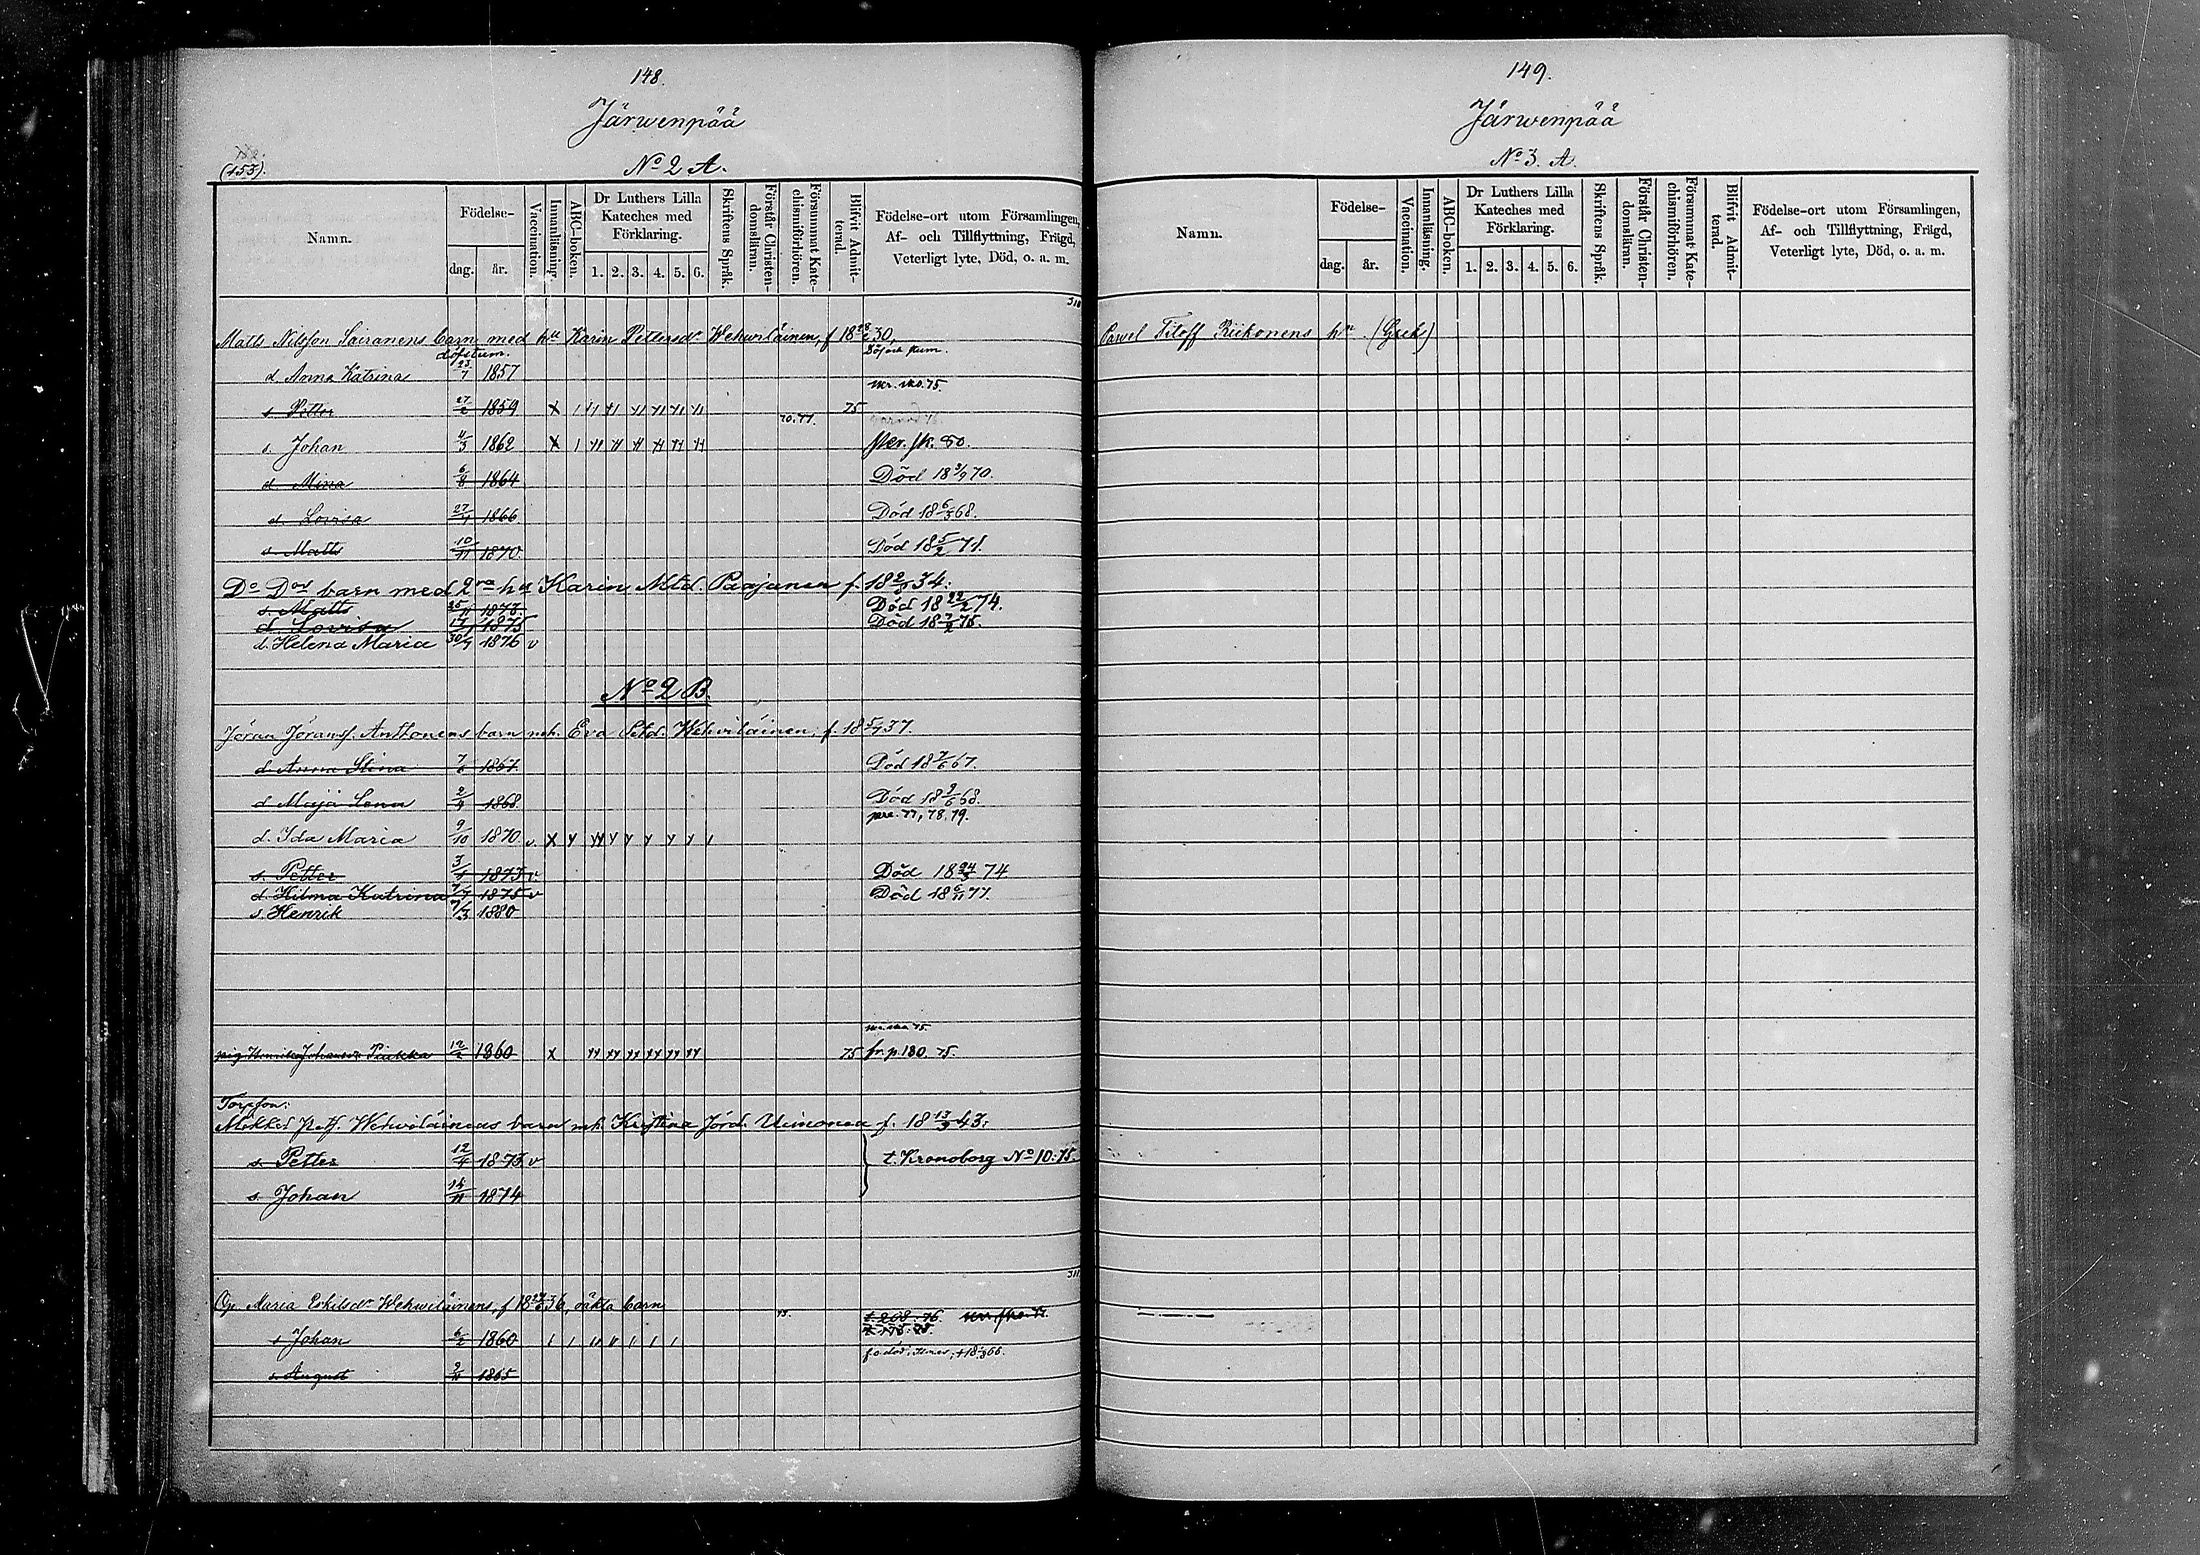 148.
Järwenpää
(153).
No 2 A.
Namn.
Födelse-
dag. år.
Vaccination.
Innanläsning.
ABC-boken.
Dr Luthers Lilla Kateches med Förklaring.
1. 2. 3. 4. 5. 6.
Skriftens Språk.
Förstår Christendomsläran.
Försummat Katechismiförhören.
Blifvit Admitterad.
Födelse-ort utom Församlingen, Af- och Tillflyttning, Frägd, Veterligt lyte, Död, o. a. m.
Matts Nilsson Sairanens barn med hu Karin Pettersdr Wehwiläinen, f 18 28/2 30,
döfstum.
d. Anna Katrina 23/7 1857
s. Petter 27/2 1859 75
70. 77.
s. Johan 11/3 1862
d. Mina 6/8 1864 Död 18 3/9 70.
d. Lovisa 27/4 1866 Död 18 6/3 68.
s. Matts 10/11 1870 Död 18 5/2 71.
Do Dos barn med 2ra hu Karin Mtd. Paajanen f. 18 2/8 34:
s. Matts 25/11 1873. Död 18 22/2 74.
d. Lovisa 17/1 1875 Död 18 7/2 75.
d. Helena Maria 30/9 1876 v
No 2 B.
Jöran Jöranss. Anttonens barn mh. Eva Petd. Wehviläinen, f. 18 5/7 37.
d. Anna Stina 7/6 1867 Död 18 7/6 67.
d. Maja Lena 2/4 1868 Död 18 9/6 68.
pre. 77, 78. 79.
d. Ida Maria 9/10 1870 v.
s. Petter 3/4 1873 v Död 18 24/5 74
d. Hilma Katrina 7/7 1875 v Död 18 6/11 77.
s. Henrik 7/3 1880
pig. Henrika Johansdr Piukka 12/2 1860 75 fr. p. 180. 75.
Torpson:
Mikkel Pets. Wehviläinens barn mh. Kristina Jörd. Uimonen f. 18 13/3 43:
s. Petter 12/4 1873 v t. Kronoborg No 10: 75.
s. Johan 15/11 1874
Og. Maria Eskilsdr Wehwiläinens, f 18 24/6 36, oäkta barn
t. 208. 76.
t. 178: 78.
s. Johan 6/2 1860
s. August 2/11 1865
149.
Järwenpää
No 3. A.
Namn.
Födelse-
dag. år.
Vaccination.
Innanläsning.
ABC-boken.
Dr Luthers Lilla Kateches med Förklaring.
1. 2. 3. 4. 5. 6.
Skriftens Språk.
Förstår Christendomsläran.
Försummat Katechismiförhören.
Blifvit Admitterad.
Födelse-ort utom Församlingen, Af- och Tillflyttning, Frägd, Veterligt lyte, Död, o. a. m.
Pawel Titoff Riikonens hn (Grek)